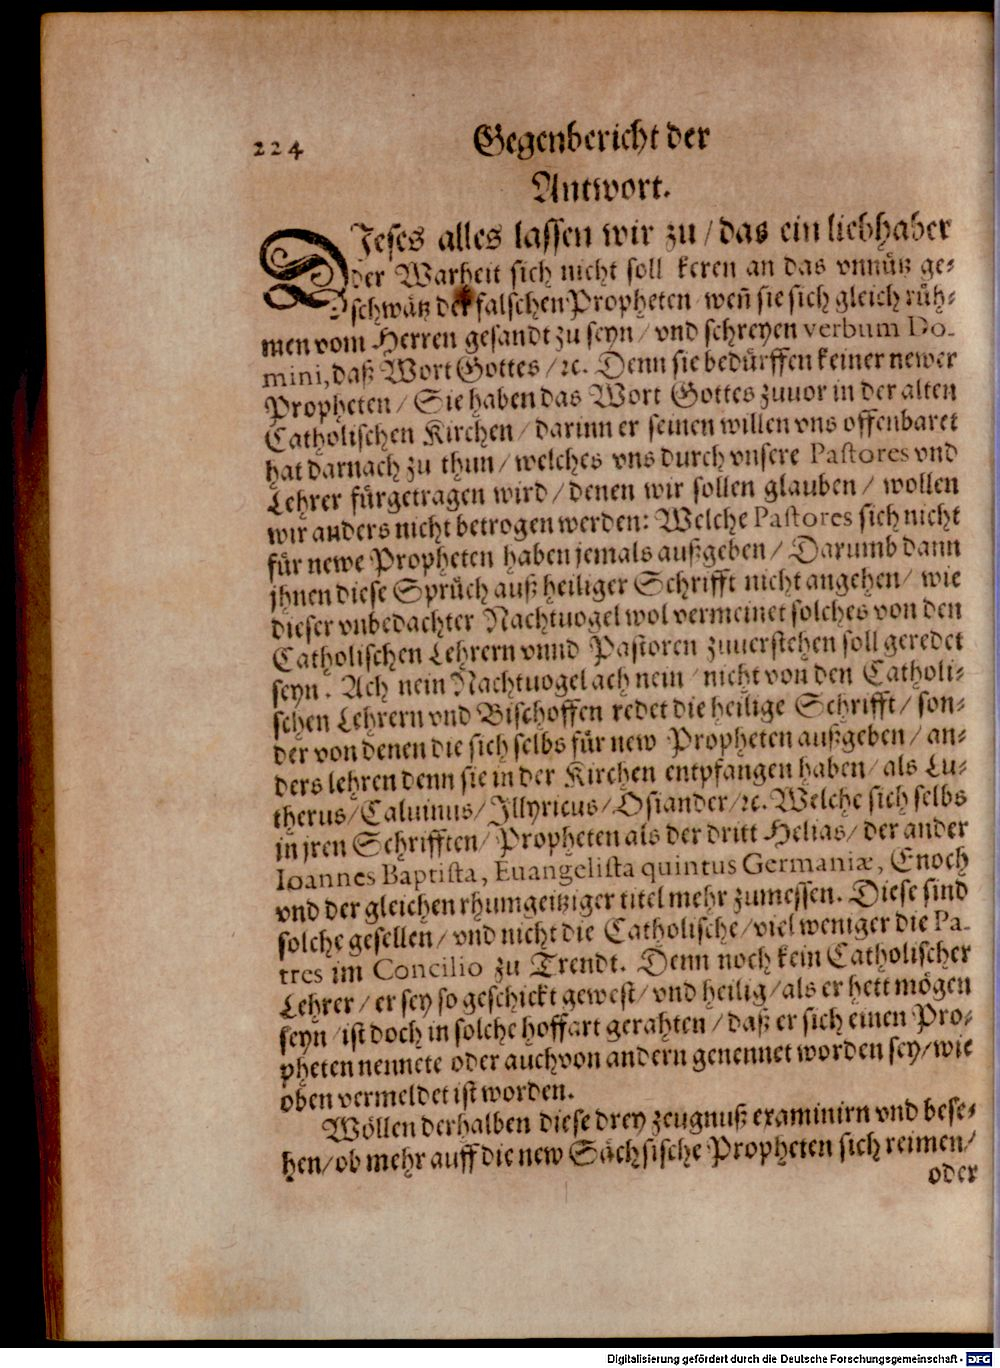 224 Gegenbericht der
Antwort.
DJeses alles lassen wir zu / das ein liebhaber
der Warheit sich nicht soll keren an das vnnütz ge-
schwätz der falschen Propheten / weñ sie sich gleich rüh-
men vom Herren gesandt zu seyn / vnd schreyen verbum Do-
mini, daß Wort Gottes / ꝛc. Denn sie bedürffen keiner newer
Propheten / Sie haben das Wort Gottes zuuor in der alten
Catholischen Kirchen / darinn er seinen willen vns offenbaret
hat darnach zu thun / welches vns durch vnsere Pastores vnd
Lehrer fürgetragen wird / denen wir sollen glauben / wollen
wir anders nicht betrogen werden: Welche Pastores sich nicht
für newe Propheten haben jemals außgeben / Darumb dann
jhnen diese Sprüch auß heiliger Schrifft nicht angehen / wie
dieser vnbedachter Nachtuogel wol vermeinet solches von den
Catholischen Lehrern vnnd Pastoren zuuerstehen soll geredet
seyn. Ach nein Nachtuogel ach nein / nicht von den Catholi-
schen Lehrern vnd Bischoffen redet die heilige Schrifft / son-
der von denen die sich selbs für new Propheten außgeben / an-
ders lehren denn sie in der Kirchen entpfangen haben / als Lu-
therus / Caluinus / Jllyricus / Osiander / ꝛc. Welche sich selbs
in jren Schrifften / Propheten als der dritt Helias / der ander
Ioannes Baptista, Euangelista quintus Germaniæ, Enoch
vnd der gleichen rhumgeitziger titel mehr zumessen. Diese sind
solche gesellen / vnd nicht die Catholische / viel weniger die Pa-
tres im Concilio zu Trendt. Denn noch kein Catholischer
Lehrer / er sey so geschickt gewest / vnd heilig / als er hett mögen
seyn / ist doch in solche hoffart gerahten / daß er sich einen Pro-
pheten nennete oder auch von andern genennet worden sey / wie
oben vermeldet ist worden.
Wöllen derhalben diese drey zeugnuß examinirn vnd bese-
hen / ob mehr auff die new Sächsische Propheten sich reimen /
oder
Digitalisierung gefördert durch die Deutsche Forschungsgemeinschaft - DFG